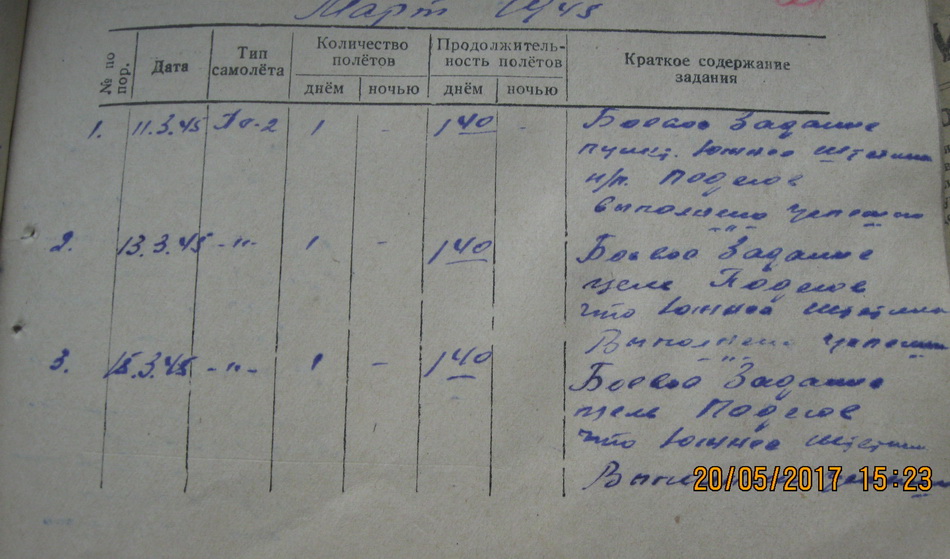 Март 1945
№ по пор.
Дата
Тип самолёта
Количество полётов
Продолжитель-
ность полётов
Краткое содержание
задания
днём ночью днём ночью
1. 11.3.45 Пе-2 1 - 1 40 - Боевое Задание
пункт. южнее Штетина
н/п. Поделов
выполнено успешно
2. 13.3.45 -"- 1 - 1 40 Боевое Задание
цель Поделов
что южнее Штетина
Выполнено успешно
3. 15.3.45 -"- 1 - 1 40 Боевое Задание
цель Поделов
что южнее Штетин
20/05/2017 15:23